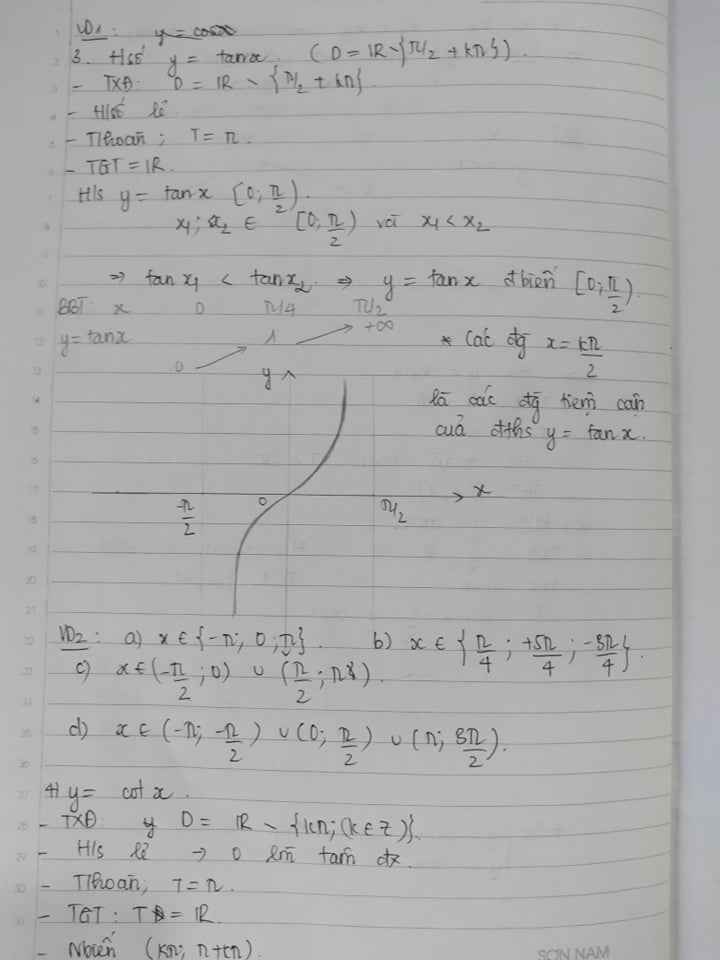 VD1: y = cosx
3. H/số y = tanx. (D = IR \ {π/2 + kπ}).
- TXĐ: D = IR \ {π/2 + kπ}
- H/số lẻ
- T/hoàn; T = π.
- TGT = IR.
H/s y = tanx [0; π/2).
x₁; x₂ ∈ [0; π/2) và x₁ < x₂
⇒ tanx₁ < tanx₂ ⇒ y = tanx đbiến [0; π/2).
BBT: x 0 π/4 π/2
y = tanx 0 1 +∞
* Các đg x = kπ/2
là các đg tiệm cận
của đths y = tanx.
y
-π/2 0 π/2 x
VD2: a) x ∈ {-π; 0; π}. b) x ∈ {π/4; +5π/4; -3π/4}.
c) x ∈ (-π/2; 0) ∪ (π/2; π).
d) x ∈ (-π; -π/2) ∪ (0; π/2) ∪ (π; 3π/2).
4) y = cotx.
- TXĐ: y D = IR \ {kπ; (k ∈ Z)}.
- H/s lẻ → O làm tâm đx.
- T/hoàn; T = π.
- TGT: T = IR.
- Nbiến (kπ; π+kπ).
SON NAM